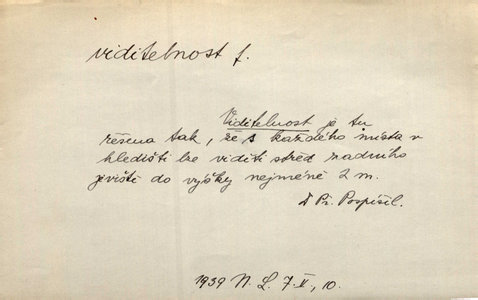 viditelnost f.
Viditelnost je tu
řešena tak, že s každého místa v
hledišti lze viděti střed zadního
jeviště do výšky nejméně 2 m.
Pr. Pospíšil.
1939 N. L. 7. II, 10.